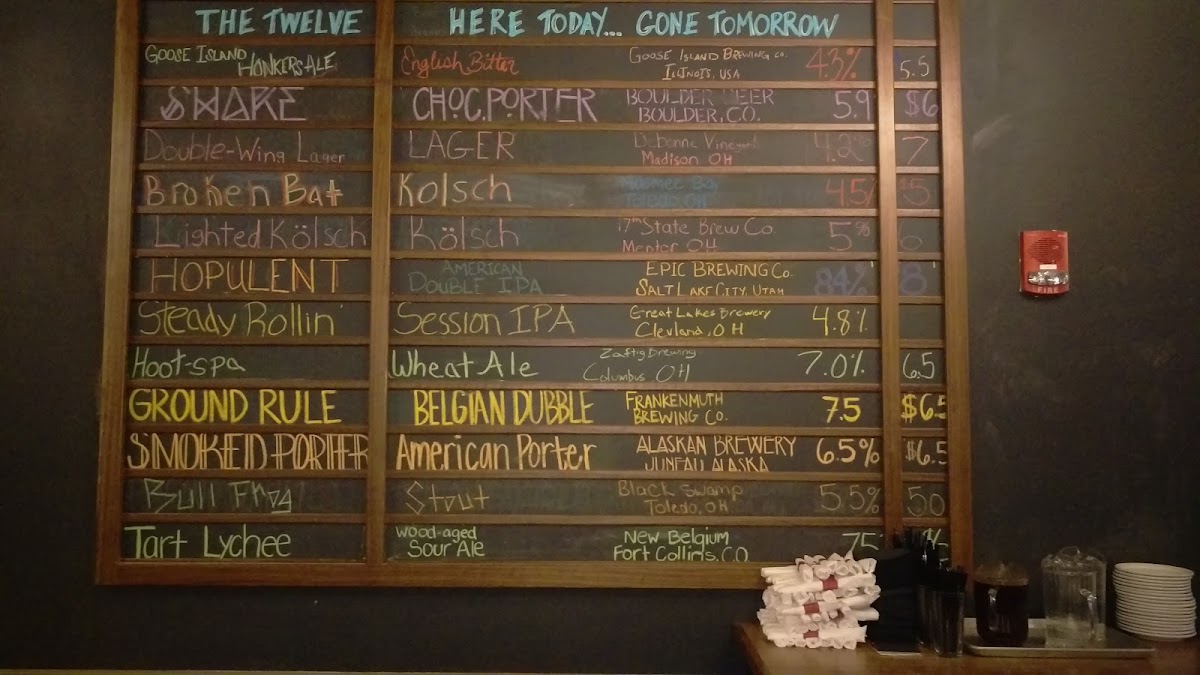 THE TWELVE HERE TODAY... GONE TOMORROW
GOOSE ISLAND HONKERS ALE English Bitter GOOSE ISLAND BREWING CO. ILLINOIS, USA 4.3% 5.5
SHAKE CHOC. PORTER BOULDER BEER BOULDER, CO. 5.9 $6
Double-Wing Lager LAGER Debonne Vineyards Madison OH 4.2% 7
Broken Bat Kolsch Maumee Bay Toledo, OH 4.5% $5
Lighted Kölsch Kölsch 17th State Brew Co. Mentor OH 5% 6
HOPULENT AMERICAN DOUBLE IPA EPIC BREWING CO. SALT LAKE CITY, UTAH 84% 8
Steady Rollin' Session IPA Great Lakes Brewery Clevland, OH 4.8%
Hoot-spa Wheat Ale Zaftig Brewing Columbus OH 7.0% 6.5
GROUND RULE BELGIAN DUBBLE FRANKENMUTH BREWING CO. 7.5 $6.5
SMOKED PORTER American Porter ALASKAN BREWERY JUNEAU ALASKA 6.5% $6.5
Bull Frog Stout Black Swamp Toledo, OH. 5.5% 50
Tart Lychee Wood-aged Sour Ale New Belgium Fort Collins, CO 75
FIRE